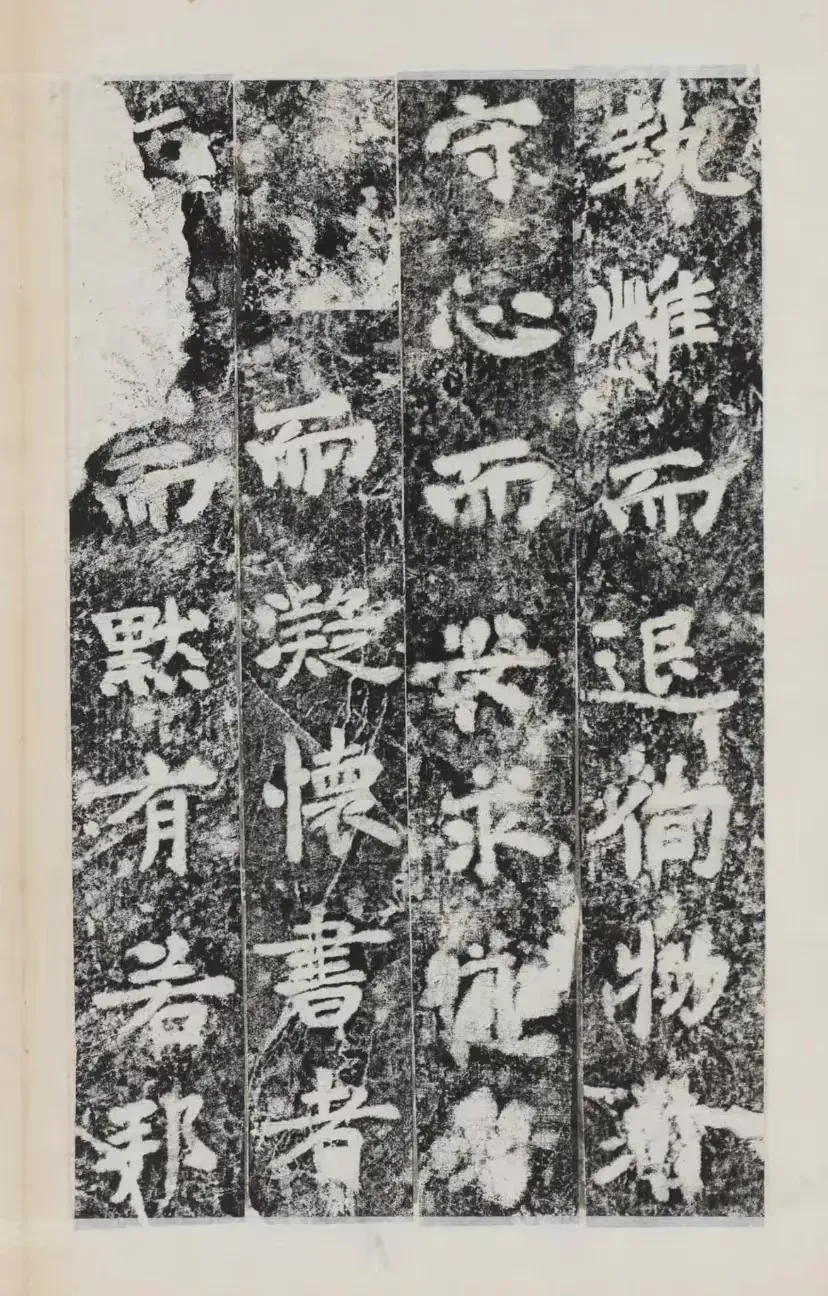 執雌而退徇物濟
守心而安求
而凝懷書者
而默有若邪